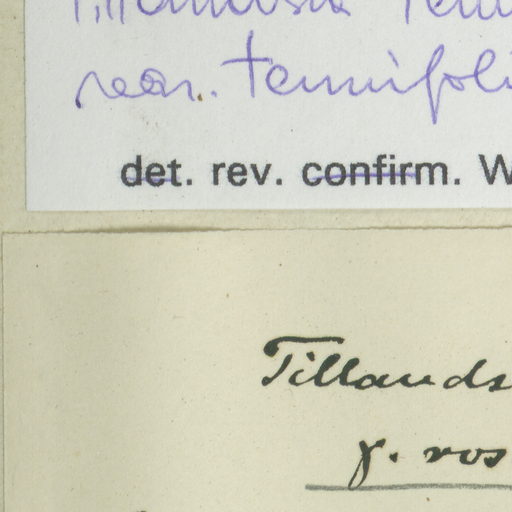 Tillandsia tenu
var. tenuifoli
det. rev. confirm. W
Tillands
γ. ros